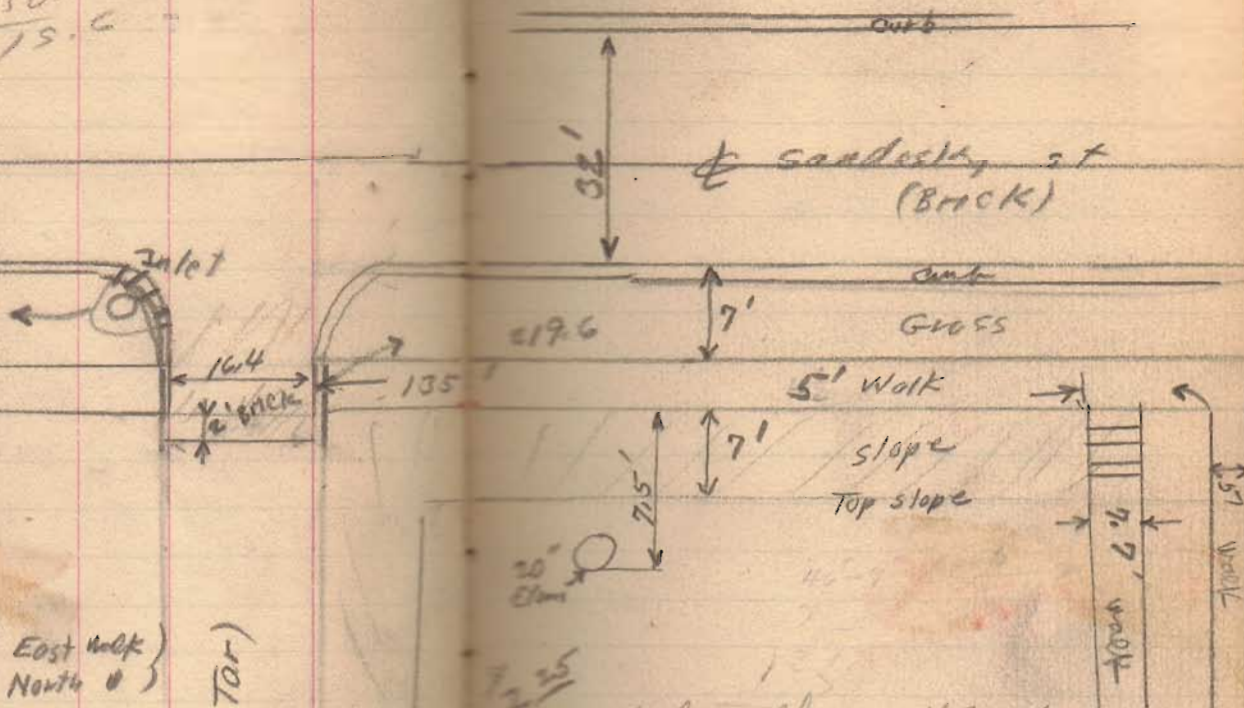 15.6
curb
32'
℄ Sandusky st
(Brick)
Inlet
curb
7'
Grass
219.6
16.4
135'
5' Walk
2' Brick
7'
slope
Top slope
7.5'
20"
Elm
7.7'
walk
walk
East walk
North "
Tar)
25